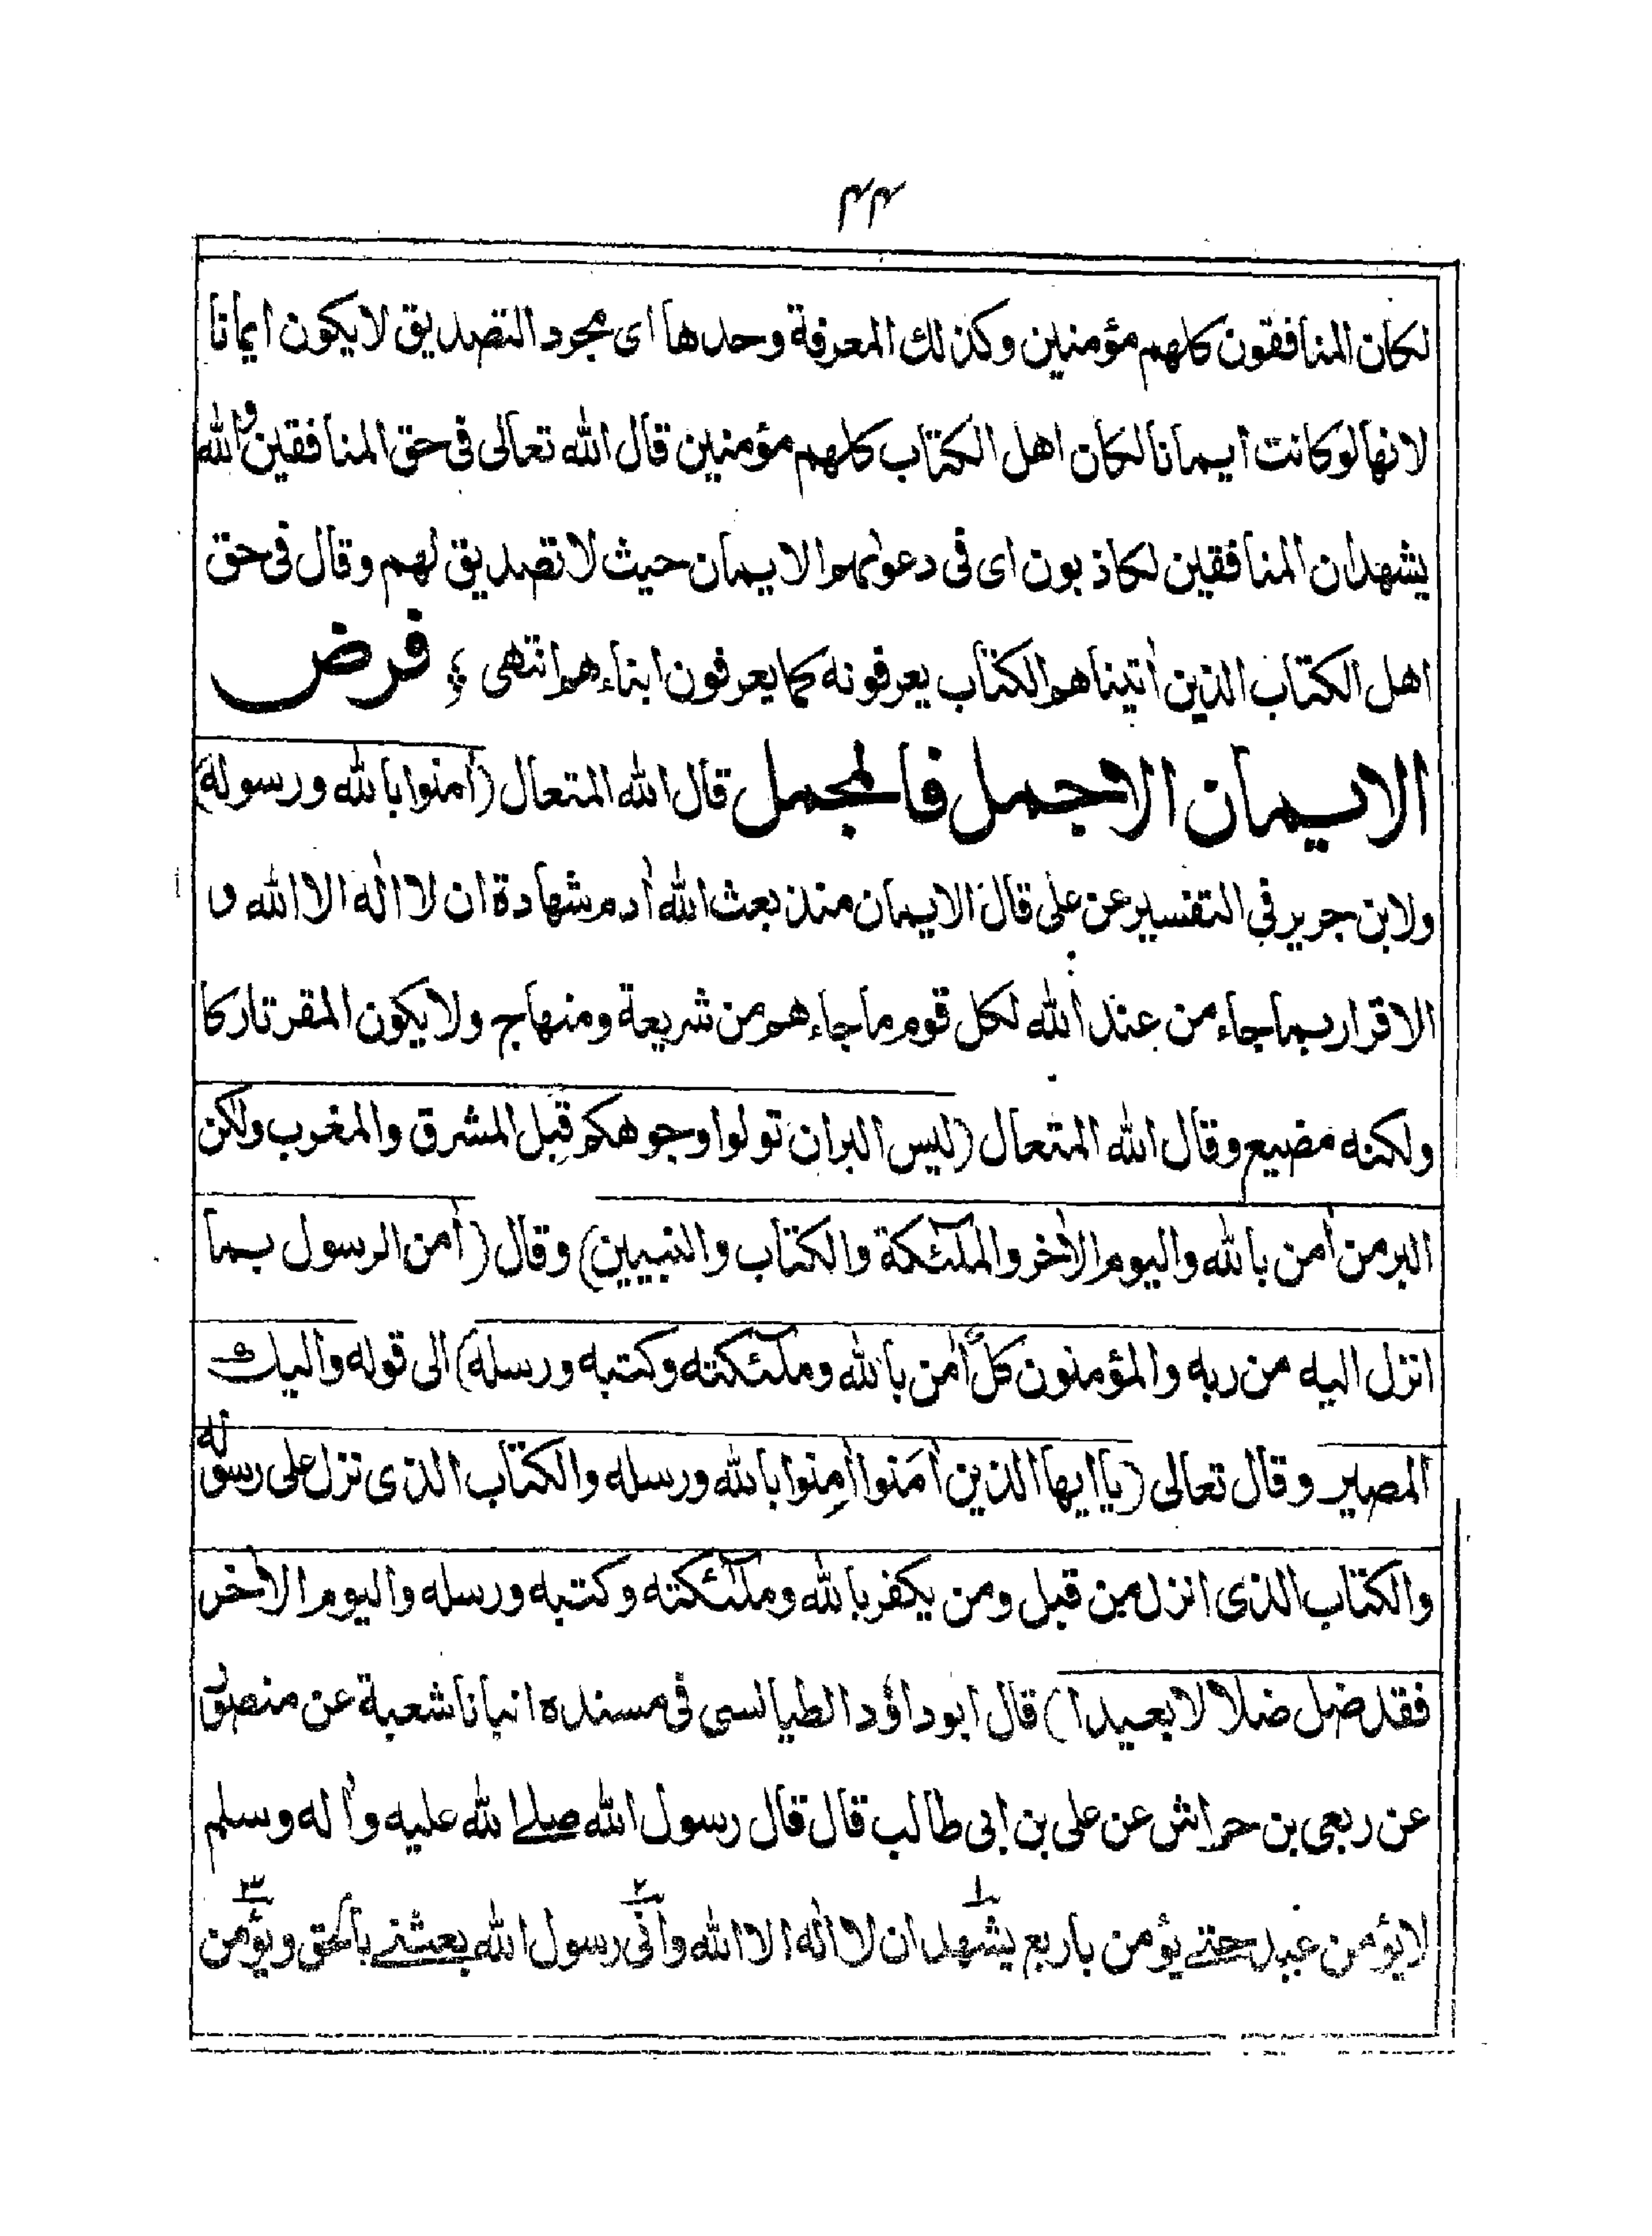 ٤٤
لكان المنافقون كلهم مؤمنين وكذلك المعرفة وحدها اى مجرد التصديق لا يكون ايمانا
لانها لو كانت ايمانا لكان اهل الكتاب كلهم مؤمنين قال الله تعالى فى حق المنافقين والله
يشهد ان المنافقين لكاذبون اى فى دعواهم الايمان حيث لا تصديق لهم وقال فى حق
اهل الكتاب الذين اٰتيناهم الكتاب يعرفونه كما يعرفون ابناءهم انتهى ؛ فرض
الايمان الاجمل فالمجمل قال الله المتعال (اٰمنوا بالله ورسوله)
ولابن جرير في التفسير عن على قال الايمان منذ بعث الله اٰدم شهادة ان لا اله الا الله و
الاقرار بما جاء من عند الله لكل قوم ما جاءهم من شريعة ومنهاج ولا يكون المقر تاركا
ولكنه مضيع وقال الله المتعال (ليس البر ان تولوا وجوهكم قِبل المشرق والمغرب ولكن
البر من اٰمن بالله واليوم الاٰخر والملٰٓئكة والكتاب والنبيين) وقال (اٰمن الرسول بما
انزل اليه من ربه والمؤمنون كلٌ اٰمن بالله وملٰٓئكته وكتبه ورسله) الى قوله واليك
المصير وقال تعالى (يا ايها الذين اٰمَنوا اٰمِنوا بالله ورسله والكتاب الذى نزل على رسوله
والكتاب الذى انزل من قبل ومن يكفر بالله وملٰٓئكته وكتبه ورسله واليوم الاٰخر
فقد ضل ضلالا بعيدا) قال ابو داؤد الطيالسى فى مسنده انبانا شعبة عن منصور
عن ربعى بن حراش عن على بن ابى طالب قال قال رسول الله صلے الله عليه واٰله وسلم
لا يؤمن عبد حتے يؤمن باربع يشهد ان لا اله الا الله وانّى رسول الله بعثنے بالحق ويؤمن